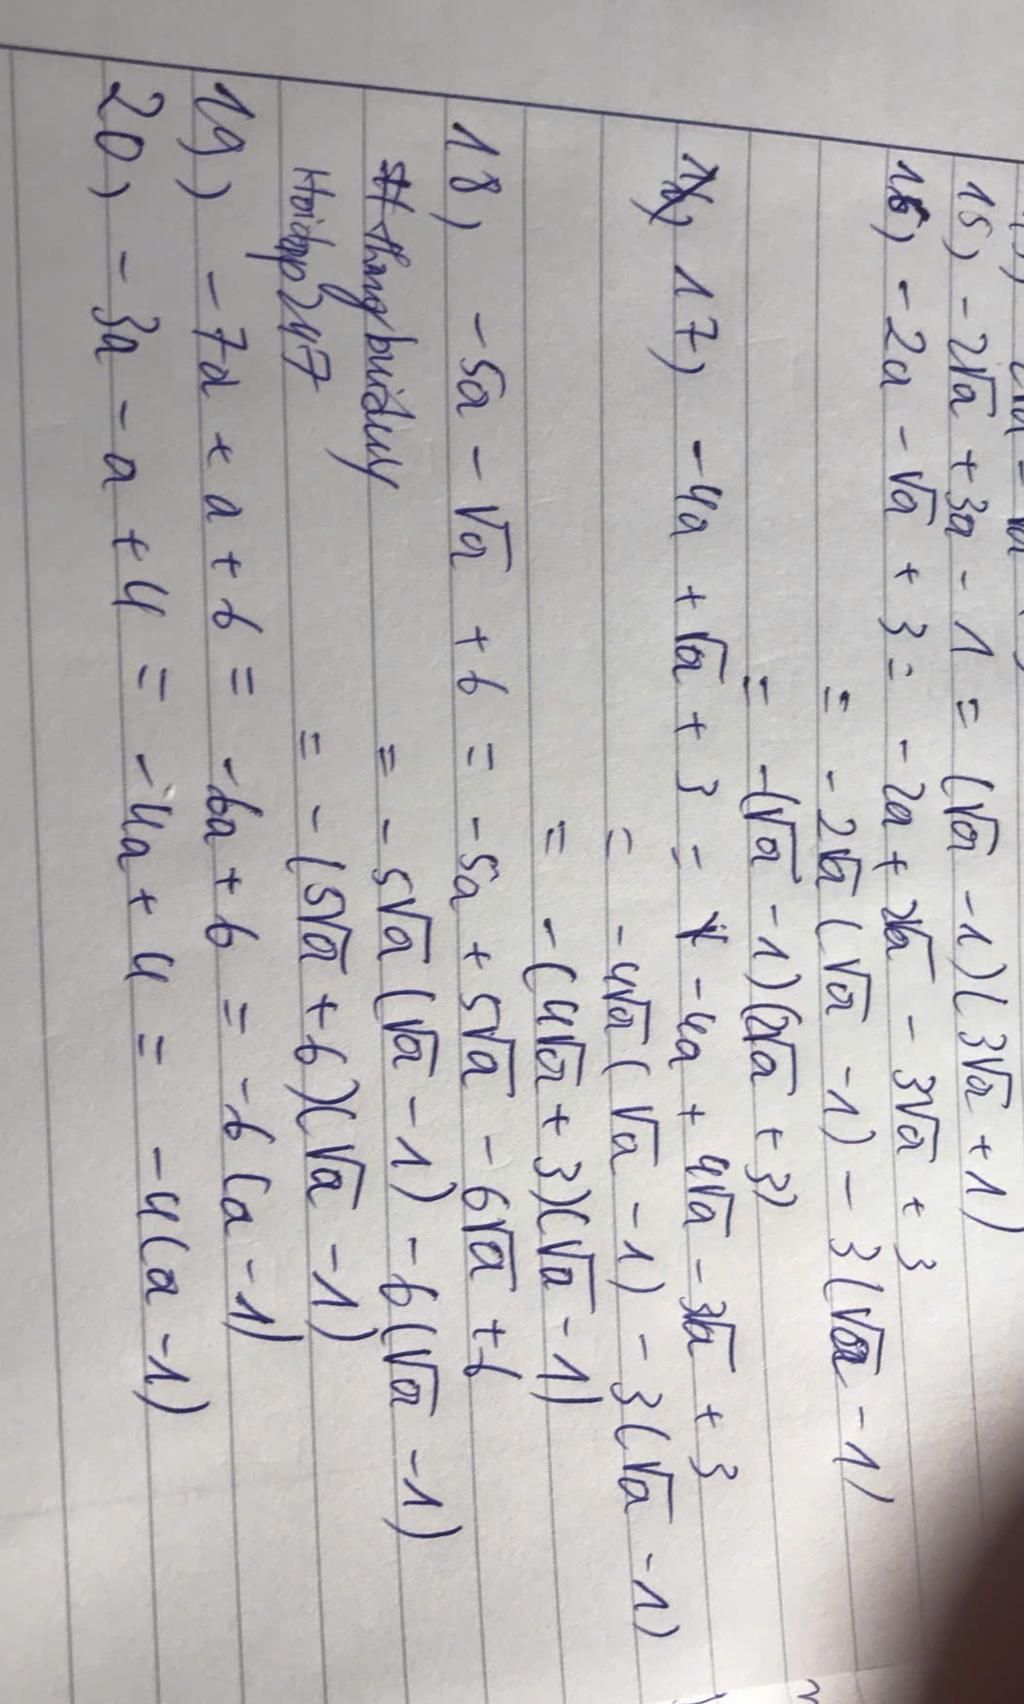 15) -2√a + 3a - 1 = (√a - 1)(3√a + 1)
16) -2a - √a + 3 = -2a + 2√a - 3√a + 3
= -2√a (√a - 1) - 3(√a - 1)
= -(√a - 1)(2√a + 3)
17) -4a + √a + 3 = -4a + 4√a - 3√a + 3
= -4√a (√a - 1) - 3(√a - 1)
= -(4√a + 3)(√a - 1)
18) -5a - √a + 6 = -5a + 5√a - 6√a + 6
= -5√a (√a - 1) - 6(√a - 1)
Hoidap247 = -(5√a + 6)(√a - 1)
19) -7a + a + 6 = -6a + 6 = -6(a - 1)
20) -3a - a + 4 = -4a + 4 = -4(a - 1)